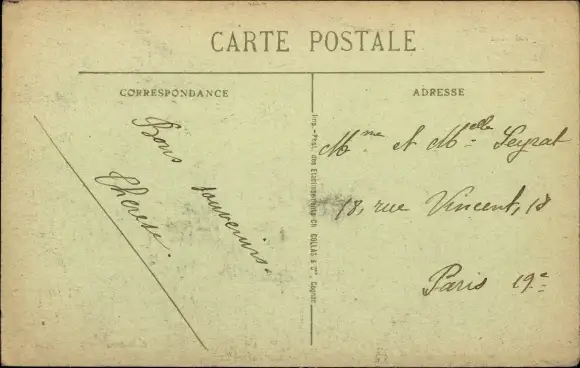 CARTE POSTALE
CORRESPONDANCE
Bons souvenirs.
Thérèse.
ADRESSE
Mme et Melle Seyrat
18, rue Vincent, 18
Paris 19e
Imp.-Phot. des Etablissements Ch. COLLAS & Cie, Cognac